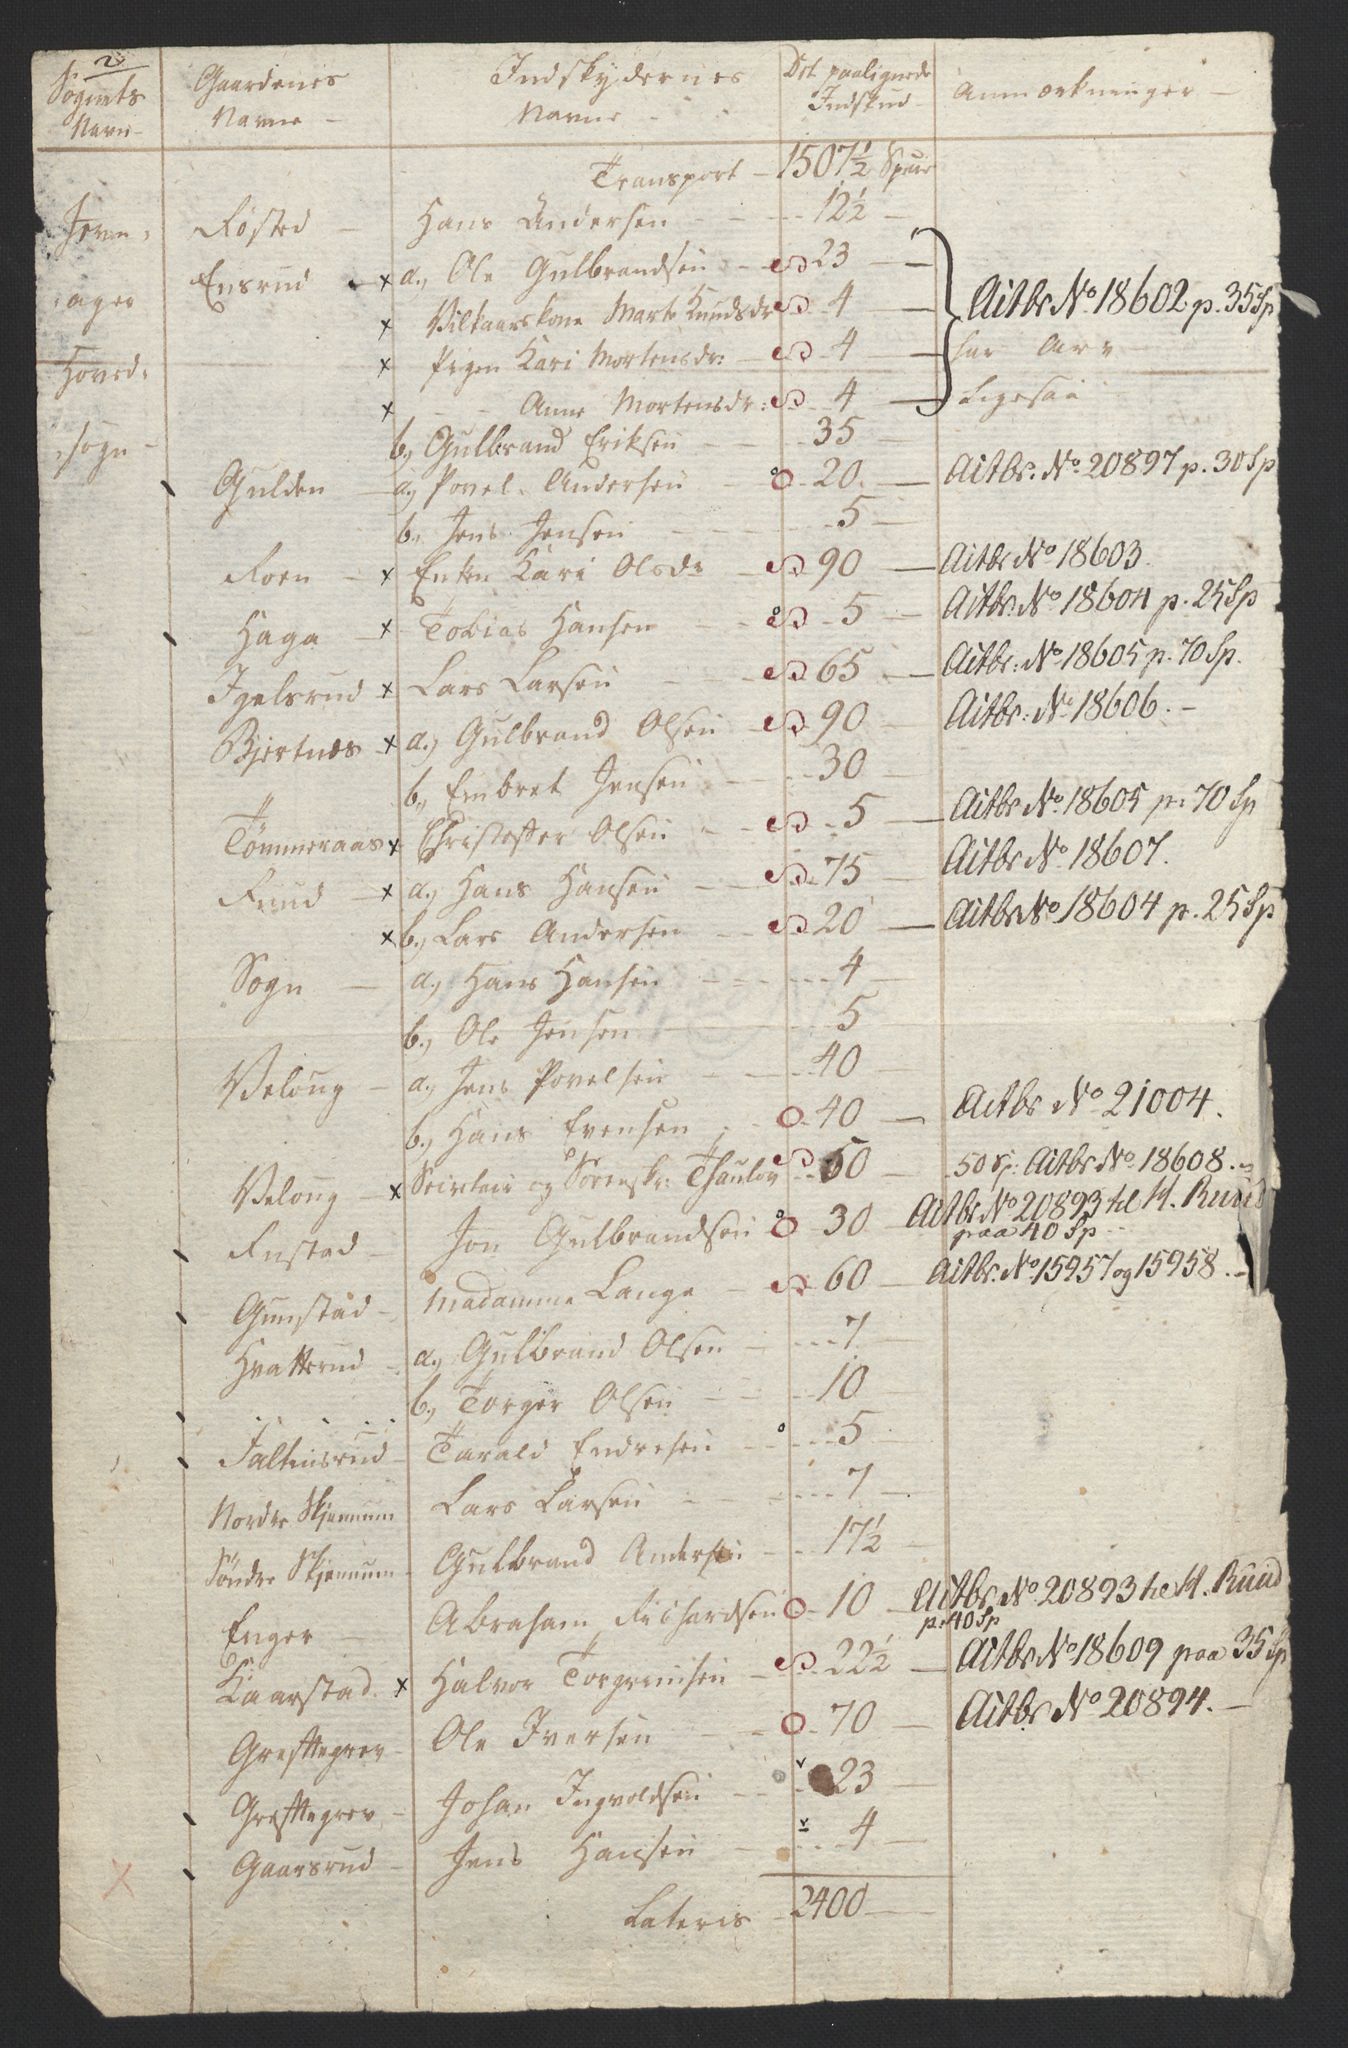 2
Sognets Navn
Gaardenes Navne
Indskydernes Navne
Det paalignede Indskud
Anmærkninger
Transport 1507½ Specie
Jevn-
ager
Hoved-
sogn
Røsted Hans Andersen 12½
Ensrud x a., Ole Gulbrandsen 23
x Vilkaarskone Marte Knudsdr 4 Actbr No 18602 p. 35 Sp
x Pigen Kari Mortensdr: 4 har Arv
x - Anne Mortensdr: 4 Ligesaa
b., Gulbrand Eriksen 35
Gulden a., Povel Andersen 20 Actbr. No 20897 p. 30 Sp
b., Jens Jensen 5
Roen x Enken Kari Olsdr 90 Actbr No 18603.
Haga x Tobias Hansen 5 Actbr. No 18604 p. 25 Sp
Igelsrud x Lars Larsen 65 Actbr: No 18605 p. 70 Sp.
Bjertnæs x a.) Gulbrand Olsen 90 Actbr: No 18606.
b., Embret Jensen 30
Tömmeraas x Christoffer Olsen 5 Actbr No 18605 p. 70 Sp
Ruud x a.) Hans Hansen 75 Actbr No 18607.
x b.) Lars Andersen 20 Actbr No 18604 p. 25 Sp
Sogn a.) Hans Hansen 4
b.) Ole Jensen 5
Veloug a.) Jens Povelsen 40
b.) Hans Evensen 40 Actbr No 21004.
Veloug x og Sorenskr: Thaulov 50 50 Sp: Actbr No 18608.
Enstad Jon Gulbrandsen 30 Actbr No 20893 til H. Ruud
paa 40 Sp
Gunstad Madamme Lange 60 Actbr. No 15957 og 15958.
Hvatterud a.) Gulbrand Olsen 7
b.) Torger Olsen 10
Faltinsrud Tarald Endresen 5
Nordre Skjennum Lars Larsen 7
Söndre Skjennum Gulbrand Andersen 17½
Enger Abraham Richardsen 10 Actbr No 20893 til H. Ruud
p. 40 Sp
Kaarstad x Halvor Torgrimsen 22½ Actbr No 18609 paa 35 Sp
Greftegrev Ole Iversen 70 Actbr No 20894.
Greftegrev Johan Ingvoldsen 23
Gaarsrud Jens Hansen 4
Lateris 2400